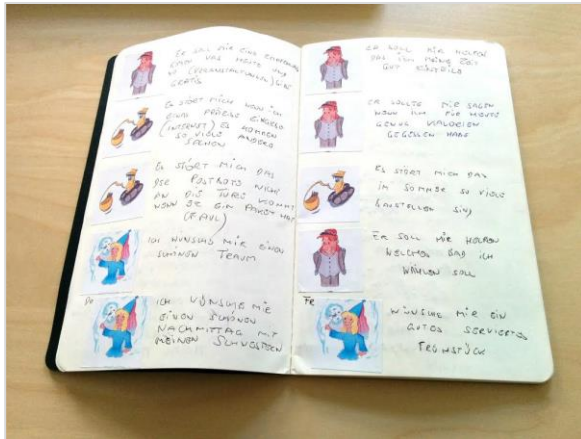 ER SOLL MIR EINE
WAS HEUTE UND
GRATIS
ES STÖRT MICH WENN ICH
ETWAS PRÄZISE EINGEBE
(INTERNET) ES KOMMEN
SO VIELE ANDERE
SEITEN
ES STÖRT MICH DAS
DER POSTBOTE NICHT
AN DIE TÜRE KOMMT
WENN ER EIN PAKET HAT
(FAUL)
ICH WÜNSCHE MIR EINEN
SCHÖNEN TRAUM
Do
ICH WÜNSCHE MIR
EINEN SCHÖNEN
NACHMITTAG MIT
MEINEN SCHWESTERN
ER SOLL MIR HELFEN
DAS ICH MEINE ZEIT
GUT EINTEILE
ER SOLLTE MIR SAGEN
WANN ICH FÜR HEUTE
GENUG KALORIEN
GEGESSEN HABE
ES STÖRT MICH DAS
IM SOMMER SO VIELE
BAUSTELLEN SIND
ER SOLL MIR HELFEN
WELCHES BAD ICH
WÄHLEN SOLL
Fr
WÜNSCHE MIR EIN
GUTES SERVIERTES
FRÜHSTÜCK